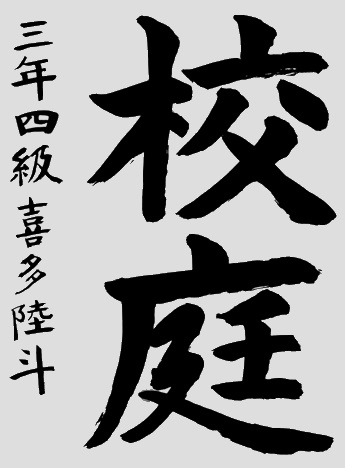 校庭
三年四級喜多陸斗